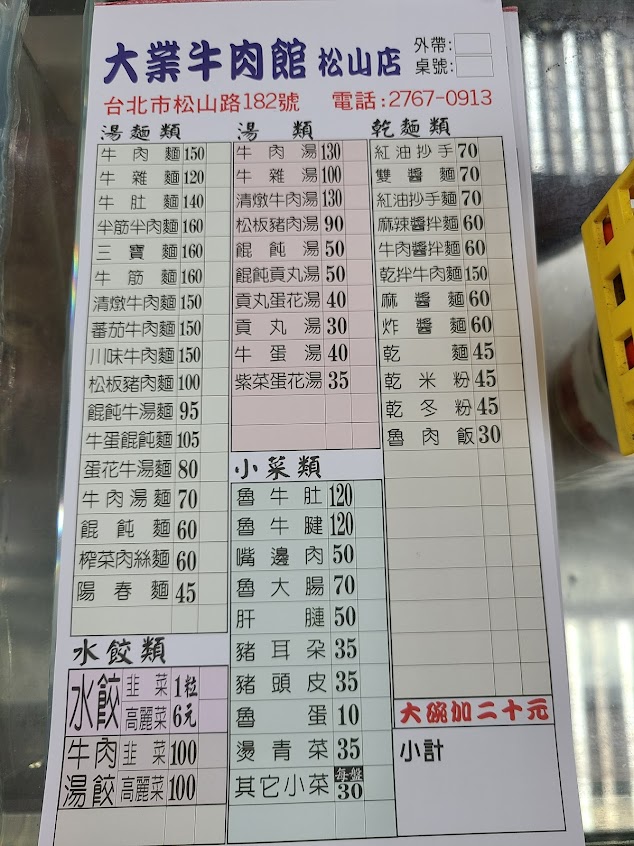 大業牛肉館 松山店
外帶:
桌號:
台北市松山路182號 電話:2767-0913
湯麵類
牛肉麵 150
牛雜麵 120
牛肚麵 140
半筋半肉麵 160
三寶麵 160
牛筋麵 160
清燉牛肉麵 150
蕃茄牛肉麵 150
川味牛肉麵 150
松板豬肉麵 100
餛飩牛湯麵 95
牛蛋餛飩麵 105
蛋花牛湯麵 80
牛肉湯麵 70
餛飩麵 60
榨菜肉絲麵 60
陽春麵 45
水餃類
水餃 韭菜 高麗菜 1粒 6元
牛肉湯餃 韭菜 100
高麗菜 100
湯類
牛肉湯 130
牛雜湯 100
清燉牛肉湯 130
松板豬肉湯 90
餛飩湯 50
餛飩貢丸湯 50
貢丸蛋花湯 40
貢丸湯 30
牛蛋湯 40
紫菜蛋花湯 35
小菜類
魯牛肚 120
魯牛腱 120
嘴邊肉 50
魯大腸 70
肝腱 50
豬耳朶 35
豬頭皮 35
魯蛋 10
燙青菜 35
其它小菜 每盤 30
乾麵類
紅油抄手 70
雙醬麵 70
紅油抄手麵 70
麻辣醬拌麵 60
牛肉醬拌麵 60
乾拌牛肉麵 150
麻醬麵 60
炸醬麵 60
乾麵 45
乾米粉 45
乾冬粉 45
魯肉飯 30
大碗加二十元
小計